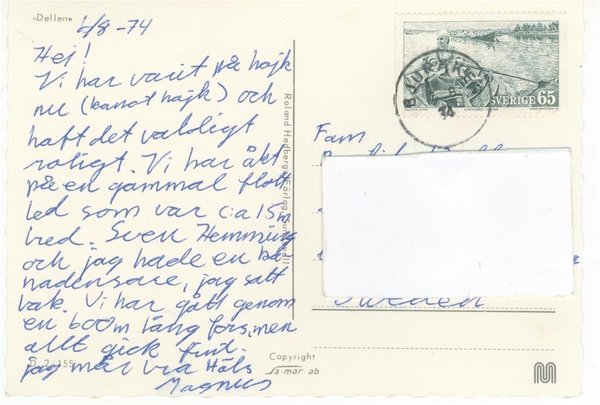 «Dellen»
6/8 -74
Hej!
Vi har varit på hajk
nu (kanot hajk) och
haft det väldigt
roligt. Vi har åkt
på en gammal flott
led som var c:a 15m
bred. Sven Hemming
och jag hade en ka
nadensare, jag satt
bak. Vi har gått genom
en 600m lång fors, men
allt gick fint.
jag mår bra Häls
Magnus
D 2/155
Roland Hedberg Förlag
Copyright
a-mar ab
SVERIGE 65
74
Fam
Sweden